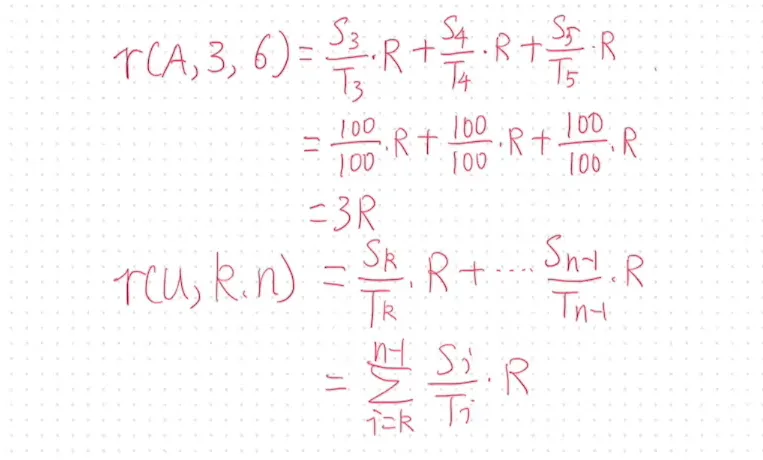 r(A, 3, 6) = S₃/T₃ · R + S₄/T₄ · R + S₅/T₅ · R
= 100/100 · R + 100/100 · R + 100/100 · R
= 3R
r(u, k, n) = Sₖ/Tₖ · R + ···· Sₙ₋₁/Tₙ₋₁ · R
= ∑_{i=k}^{n-1} Sᵢ/Tᵢ · R